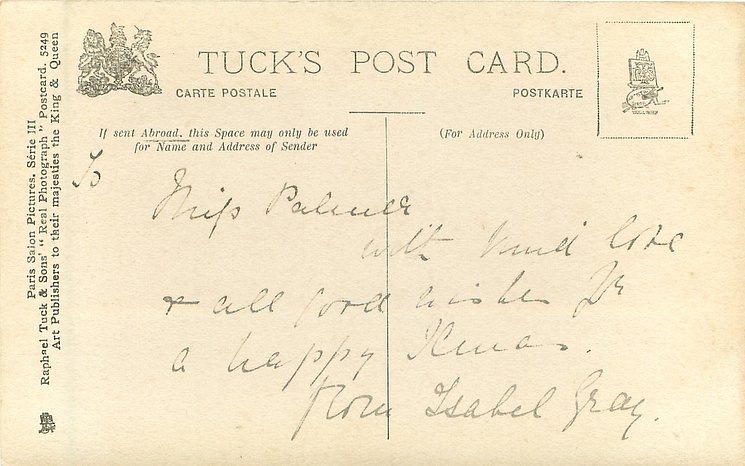 TUCK'S POST CARD.
CARTE POSTALE
POSTKARTE
If sent Abroad, this Space may only be used
for Name and Address of Sender
(For Address Only)
To
Miss Palmer
with kind love
& all good wishes for
a happy Xmas.
from Isabel Gray.
Paris Salon Pictures. Série III
Raphael Tuck & Sons' "Real Photograph" Postcard. 5249
Art Publishers to their majesties the King & Queen